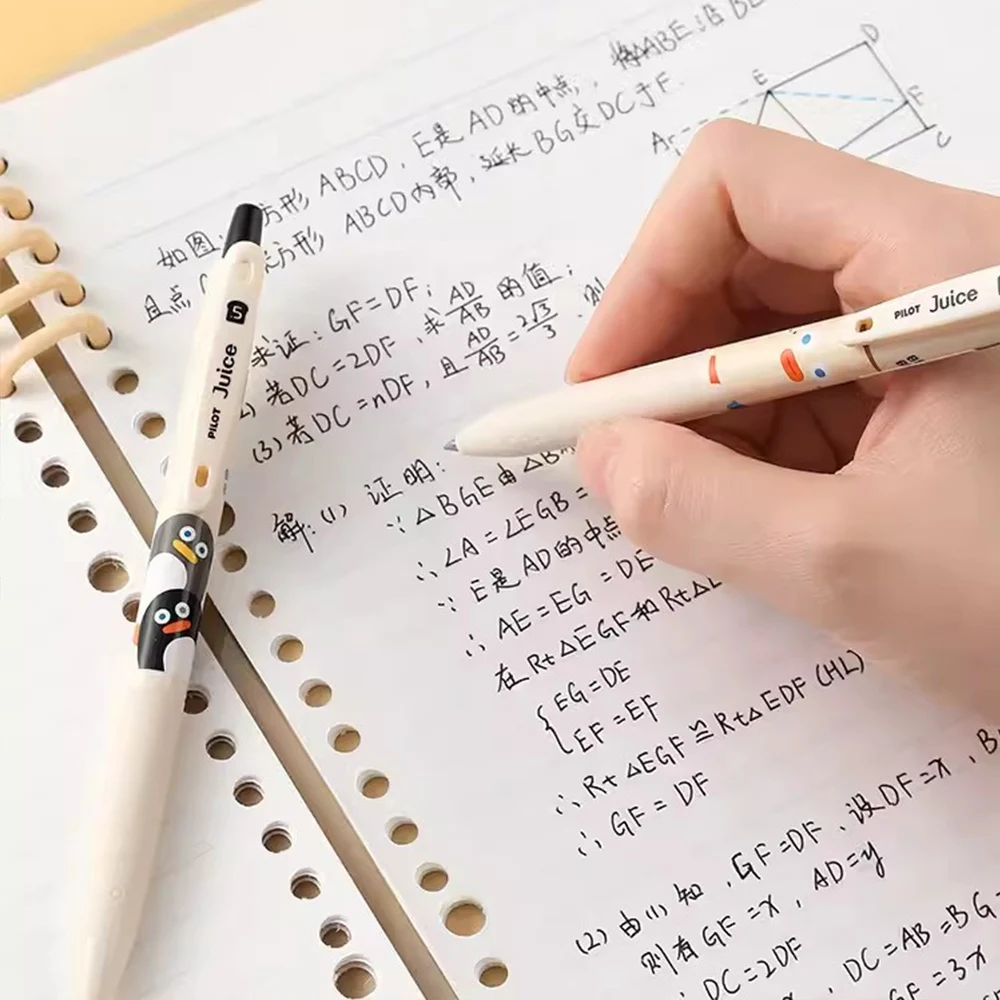 如图, 方形 ABCD, E是AD的中点, 将△ABE沿BE
且点 方形 ABCD内部, 延长BG交DC于F.
求证: GF=DF;
若DC=2DF, 求AD/AB的值;
(3) 若DC=nDF, 且AD/AB=2√3/3, 则
解: (1) 证明:
∵ △BGE由△B
∴ ∠A=∠EGB=
∵ E是AD的中点
∴ AE=EG=DE
在Rt△EGF和Rt△E
{EG=DE
EF=EF
∴ Rt△EGF≌Rt△EDF(HL)
∴ GF=DF
(2) 由(1)知, GF=DF, 设DF=x, B
则有GF=x, AD=y
∴ DC=2DF
DC=AB=BG=
GF=3x
E
D
F
C
A
5
PILOT Juice
PILOT Juice